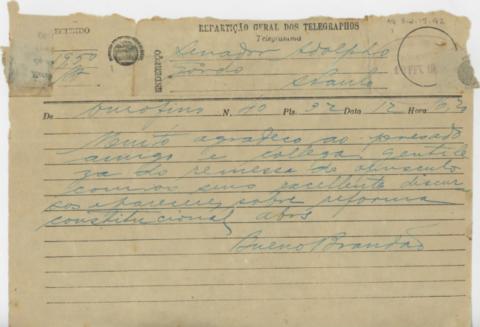 AG 3.2.15.92
RECEBIDO
REPARTIÇÃO GERAL DOS TELEGRAPHOS
Telegramma
ENDEREÇO
Senador Adolpho
Gordo
SPaulo
1950
FEV
De Ourofino N. 40 Pls. 32 Data 12 Hora
Muito agradeço ao presado
amigo e collega gentile
za do remessa do opusculo
com os seus excellente discur
sos e parecer sobre reforma
constitucional abrs
Bueno Brandão